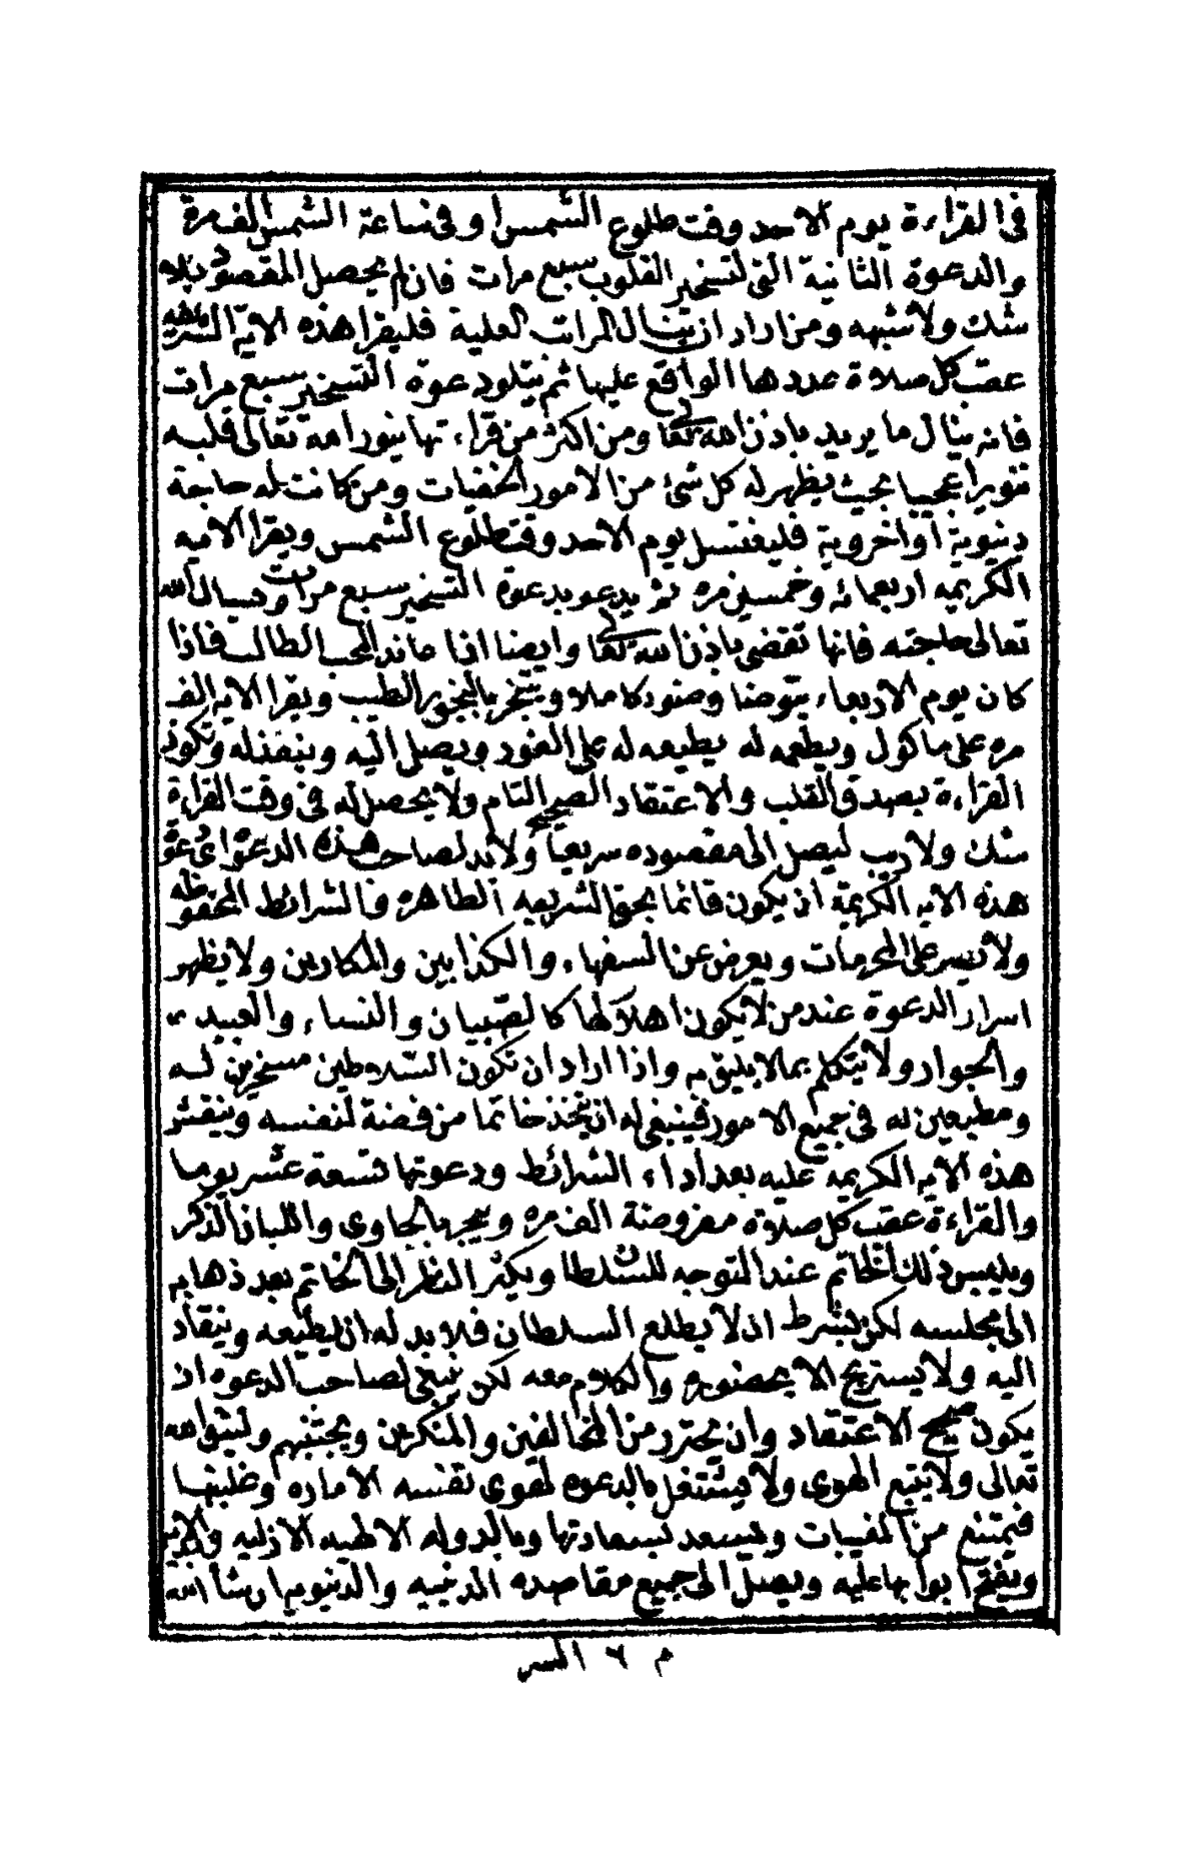 في القراءة يوم الاحد وقت طلوع الشمس او في ساعة الشمس الف مرة
والدعوة الثانية التي لتسخير القلوب سبع مرات فان لم يحصل المقصود بلا
شك ولا شبهه ومن اراد ان ينال المراتب العلية فليقرا هذه الآية الشريفه
عقب كل صلاة عددها الواقع عليها ثم يتلو دعوة التسخير سبع مرات
فانه ينال ما يريد باذن الله تعا ومن اكثر من قراءتها ينور الله تعالى قلبه
تنويرا عجيبا بحيث يظهر له كل شئ من الامور الخفيات ومن كانت له حاجة
دنيوية او اخروية فليغتسل يوم الاحد وقت طلوع الشمس ويقرا الآيه
الكريمه اربعمائه وخمسين مره ثم يدعو بدعوة التسخير سبع مرات ويسال الله
تعالى حاجته فانها تقضى باذن الله تعا وايضا اذا عاند المحب الطالب فاذا
كان يوم الاربعاء يتوضا وضوءا كاملا ويتبخر بالبخور الطيب ويقرا الآيه الف
مره على ماكول ويطعمه له يطيعه له على الفور ويصل اليه وينقذ له وتكون
القراءة بصدق القلب والاعتقاد الصحيح التام ولا يحصل له في وقت القراءة
شك ولا ريب ليصل الى مقصوده سريعا ولابد لصاحب هذه الدعوة اي دعوة
هذه الآيه الكريمة ان يكون قائما بحق الشريعه الطاهره والشرائط المحفوظه
ولا يسر على المحرمات ويعرض عن السفهاء والكذابين والمكارين ولا يظهر
اسرار الدعوة عند من لا يكون اهلا لها كالصبيان والنساء والعبيد
والجوار ولا يتكلم بما لا يليق به واذا اراد ان تكون السلاطين مسخرين له
ومطيعين له في جميع الامور فينبغي له ان يتخذ خاتما من فضة لنفسه وينقش
هذه الآيه الكريمه عليه بعد اداء الشرائط ودعوتها تسعة عشر يوما
والقراءة عقب كل صلاة مفروضة الف مره ويبخر بالجاوى واللبان الذكر
ويلبس ذلك الخاتم عند التوجه للسلطان ويكثر النظر الى الخاتم بعد ذهابه
الى مجلسه لكن بشرط ان لا يطلع السلطان فلا بد له ان يطيعه وينقاد
اليه ولا يستريح الا بحضوره والكلام معه لكن ينبغي لصاحب الدعوه ان
يكون صحيح الاعتقاد وان يحترز من المخالفين والمنكرين ويجتنبهم وليتق الله
تعالى ولا يتبع الهوى ولا يشتغل بالدعوه لهوى نفسه الاماره وغلبتها
فيمتنع من المغيبات وليسعد لسعادتها وبالدوله الالهيه الازليه والابديه
ويفتح ابوابها عليه ويصل الى جميع مقاصده الدينيه والدنيويه ان شاء الله
م ٦ السر